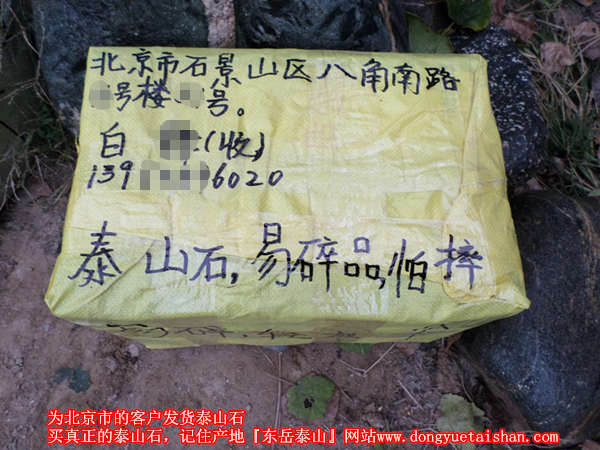 北京市石景山区八角南路
号楼 号。
白 (收)
139 6020
泰山石,易碎品,怕摔
为北京市的客户发货泰山石
买真正的泰山石，记住产地『东岳泰山』网站www.dongyuetaishan.com